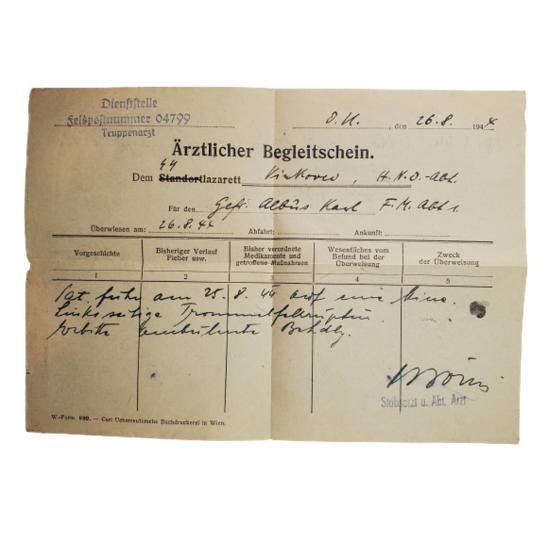 Dienststelle
Feldpostnummer 04799
Truppenarzt
O.U. , den 26.8. 1944
Ärztlicher Begleitschein.
44
Dem Standortlazarett Vinkovci, H.N.O.-Abt.
Für den Gefr. Albus Karl F.M. Abt.
Überwiesen am: 26.8.44 Abfahrt: Ankunft:
Vorgeschichte
Bisheriger Verlauf Fieber usw.
Bisher verordnete Medikamente und getroffene Maßnahmen
Wesentliches vom Befund bei der Überweisung
Zweck der Überweisung
1 2 3 4 5
Pat. fuhr am 25.8.44 auf eine Mine.
Linksseitige Trommelfellruptur.
Erbitte ambulante Behdlg.
Stabsarzt u. Abt. Arzt
W.-Form. 690. — Carl Ueberreutersche Buchdruckerei in Wien.